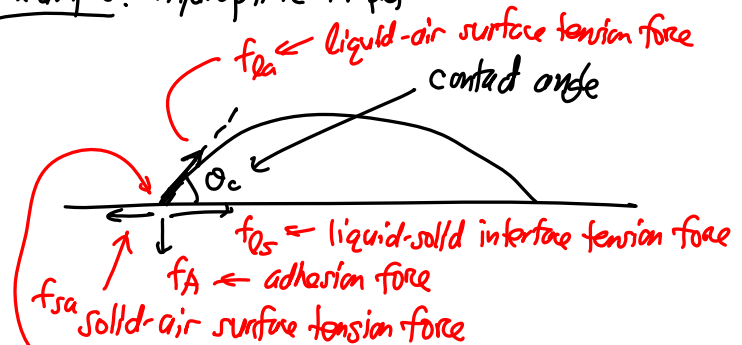 Example: hydrophilic
f_la ← liquid-air surface tension force
contact angle
θc
f_ls ← liquid-solid interface tension force
f_A ← adhesion force
f_sa solid-air surface tension force